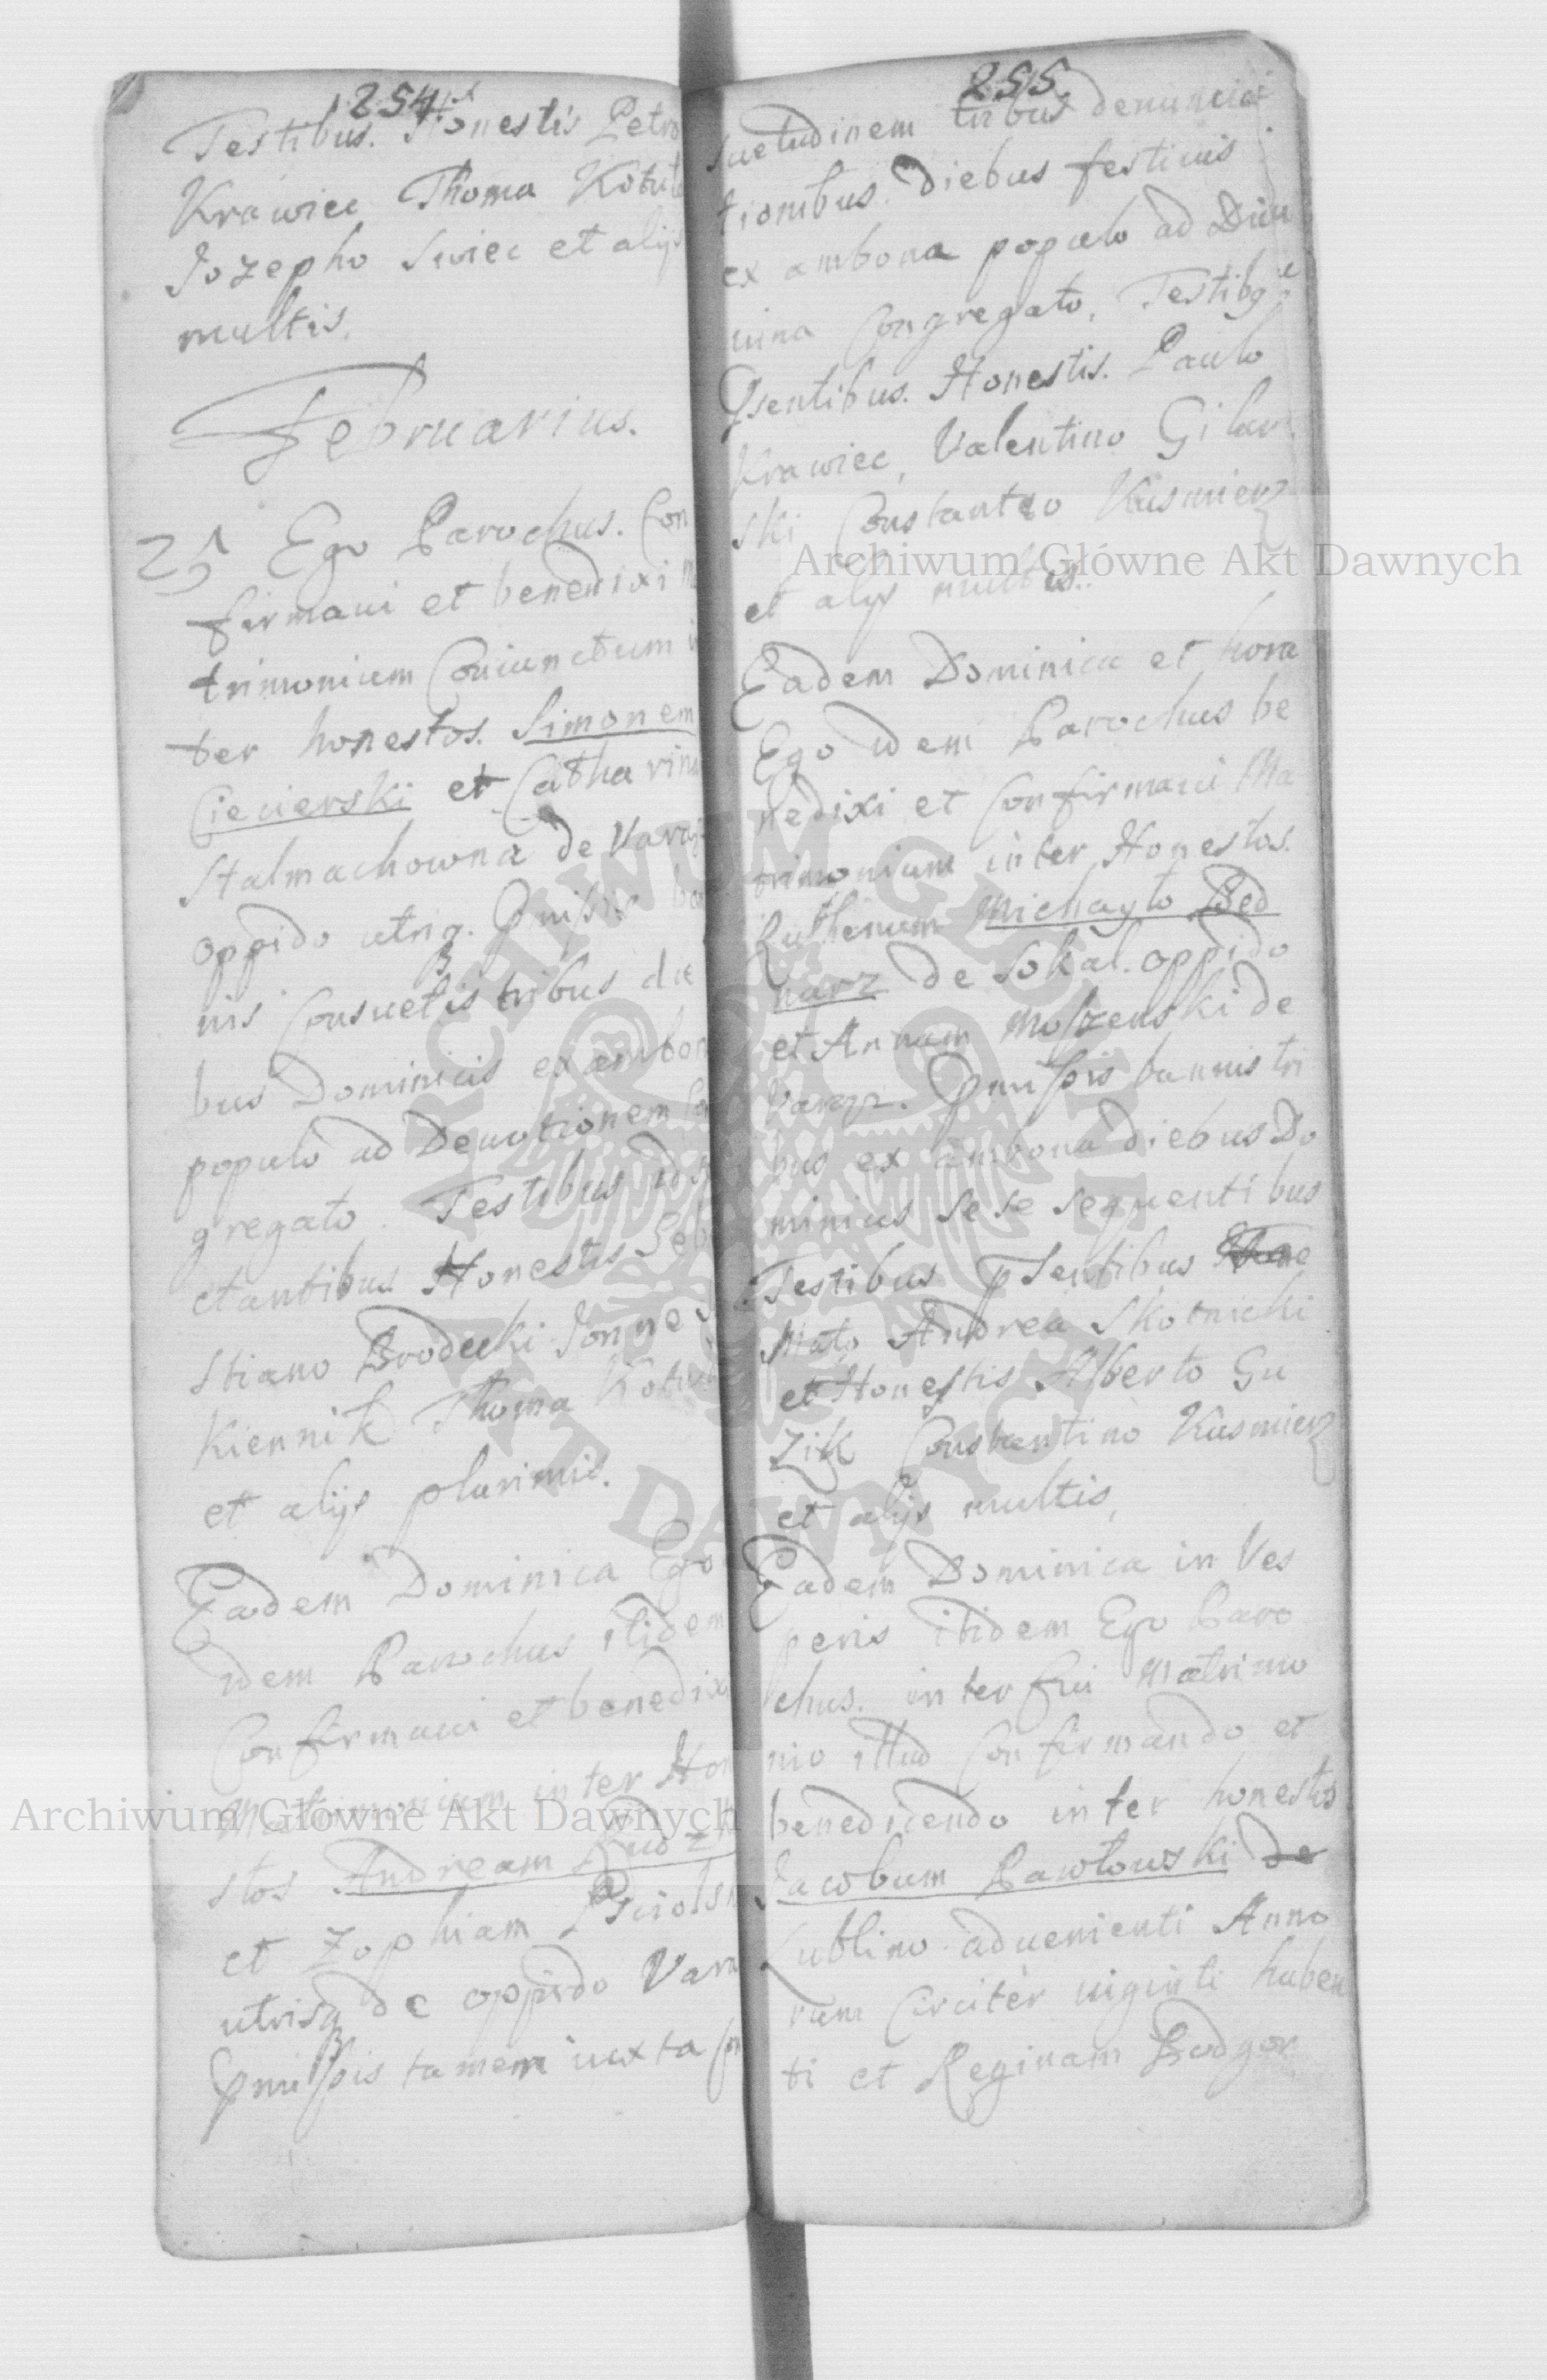 254
Testibus. Honestis Petro
Krawiec Thoma Kotul
Jozepho Swiec et alijs
multis.
Februarius.
25 Ego Parochus. Con
firmaui et benedixi
trimonium Coniunctum
ter honestos. Simonem
Ciecierski et Catharin
Stalmachowna de Varąz
oppido utriq. Pmissis ban
nis Consuetis tribus die
bus Dominicis ex ambon
populo ad Deuotionem Con
gregato. Testibus
ctantibus Honestis Seb
stiano Brodecki
Kiennik Thoma Kotul
et alijs plurimis.
Eadem Dominica Ego
idem Parochus itidem
Confirmaui et benedixi
Matrimonium inter Hon
stos Andream Rudz
et Zophiam
utrisq de oppido Vara
Pmissis tamen iuxta
255
suetudinem tribus denuncia
tionibus. Diebus festiuis
ex ambona populo ad Diui
uina Congregato, Testibg
Psentibus. Honestis. Paulo
Krawiec, Valentino Gilar
ski Constantino Kusmierz
et alijs multis.
Eadem Dominica et hora
Ego idem Parochus be
nedixi et Confirmaui Ma
trimonium inter Honestos.
Ruthenum Michayło Bed
narz de Sokal. oppido
et Annam Moszenski de
Varąz. Pmissis bannis tri
bus ex ambona diebus Do
minicis se se sequentibus
Testibus psentibus
Mato Andrea Skotnicki
et Honestis Alberto Gu
zik Constantino Kusmierz
et alijs multis,
Eadem Dominica in Ves
peris itidem Ego Paro
chus. interfui Matrimo
nio illud Confirmando et
benedicendo inter honestos
Jacobum Pawłowski de
Lublino aduenienti Anno
rum Circiter uiginti haben
ti et Reginam Podgor
Archiwum Główne Akt Dawnych
Archiwum Główne Akt Dawnych
ARCHIWUM GŁÓWNE
AKT DAWNYCH